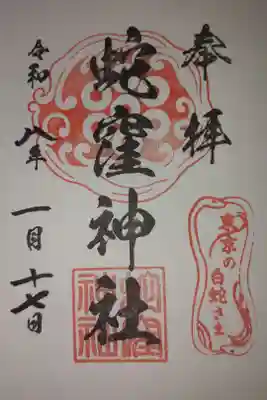 奉拝
蛇窪神社
令和八年
一月十七日
東京の
白蛇さま
蛇窪神社